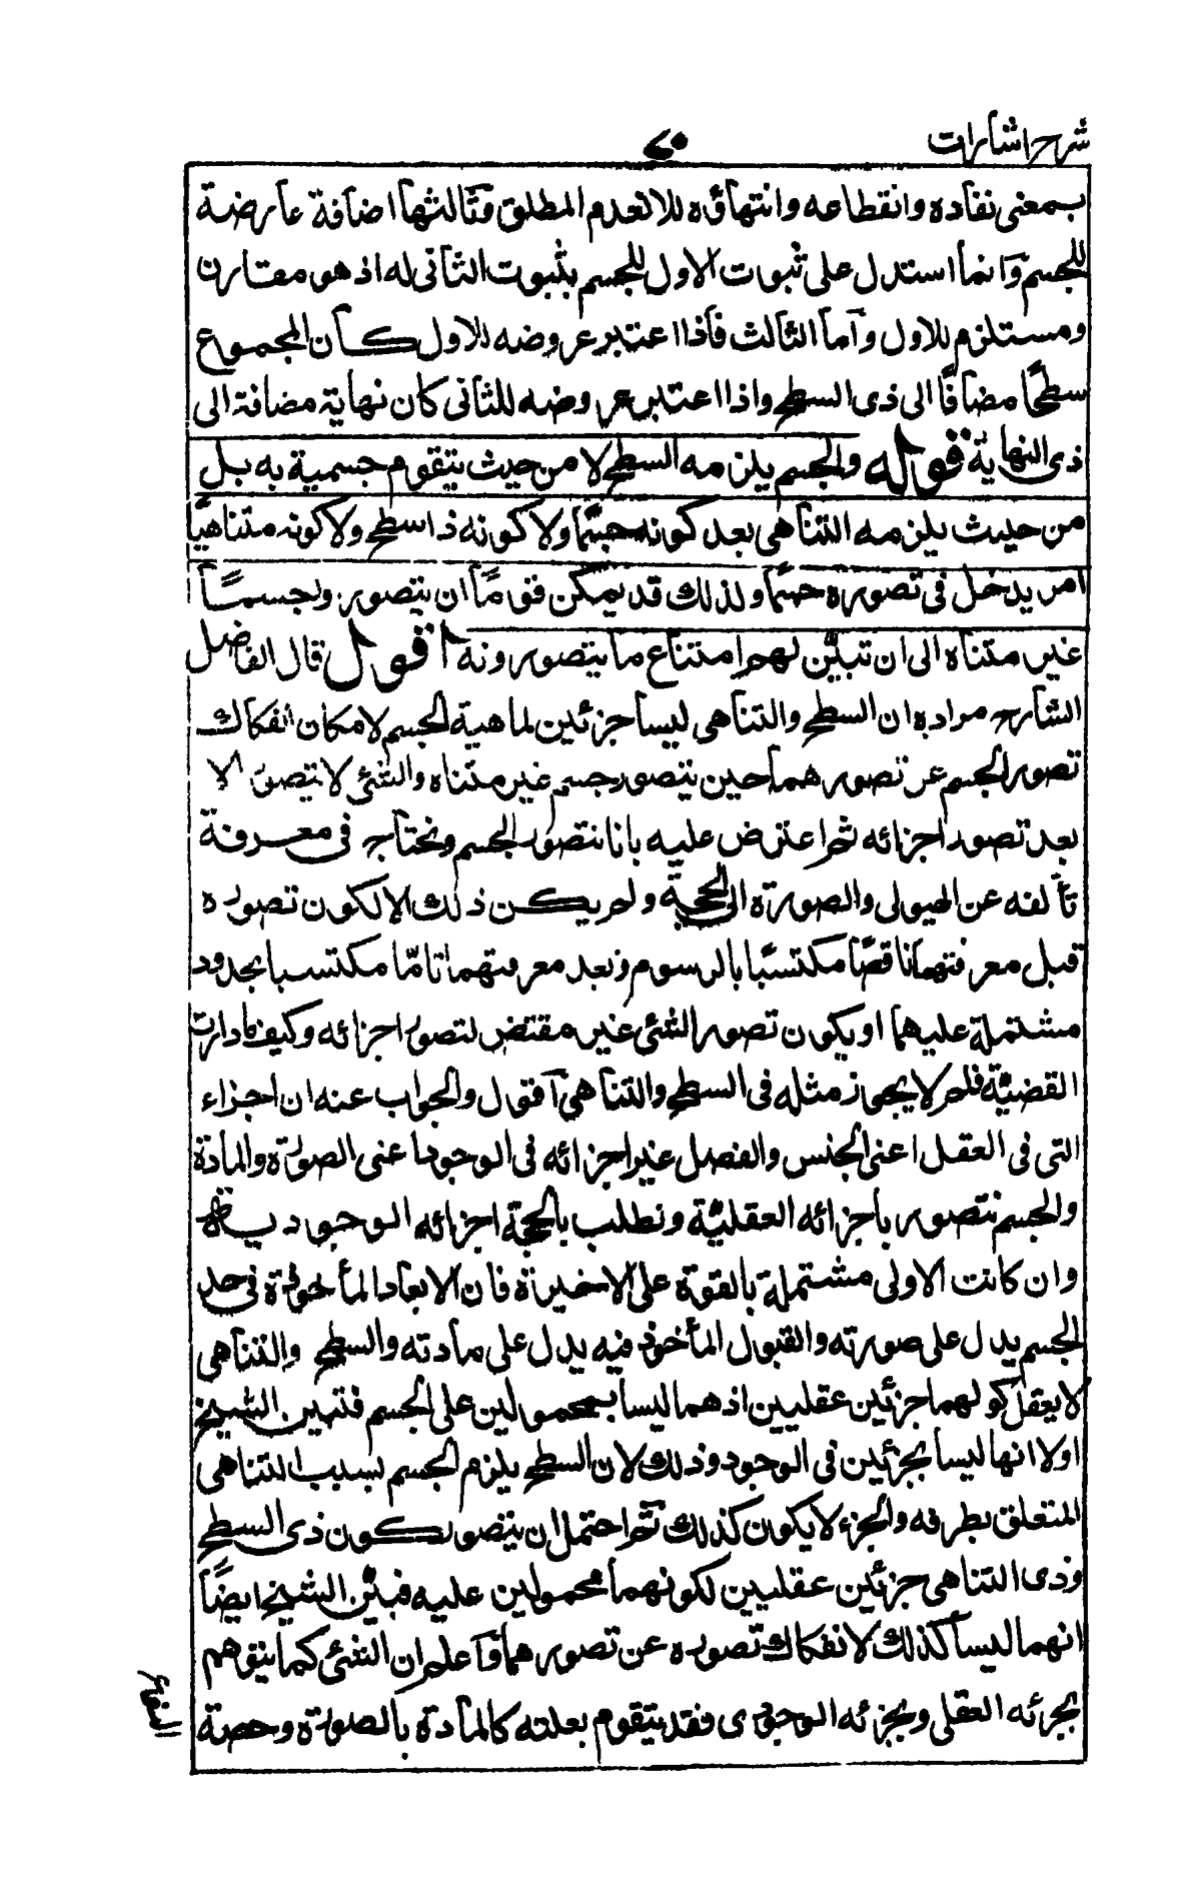 شرح اشارات
بمعنى نفاده وانقطاعه وانتهاؤه للانعدم المطلق وثالثها اضافة عارضة
للجسم وانما استدل على ثبوت الاول للجسم بثبوت الثانى له اذ هو مقارن
ومستلزم للاول وآما الثالث فاذا اعتبر عروضه للاول كان المجموع
سطحًا مضافًا الى ذى السطح واذا اعتبر عروضه للثانى كان نهاية مضافة الى
ذى النهاية قوله والجسم يلزمه السطح لا من حيث يتقوم جسمية به بل
من حيث يلزمه التناهى بعد كونه جسمًا ولا كونه ذا سطح ولا كونه متناهيًا
امر يدخل فى تصوره جسمًا ولذلك قد يمكن قومًا ان يتصوروا جسمًا
غير متناه الى ان تبيّن لهم امتناع ما يتصورونه اقول قال الفاضل
الشارح مراده ان السطح والتناهى ليسا جزئين لماهية الجسم لامكان انفكاك
تصور الجسم عن تصورهما حين يتصور جسم غير متناه والشئ لا يتصور الا
بعد تصور اجزائه ثم اعترض عليه بانا نتصور الجسم ونحتاج فى معرفة
تألفه عن الهيولى والصورة الى الحجة ولم يكن ذلك الا لكون تصوره
قبل معرفتهما ناقصًا مكتسبًا بالرسوم وبعد معرفتهما تامًّا مكتسبا بحدود
مشتملة عليهما او يكون تصور الشئ غير مقتض لتصور اجزائه وكيف ما دارت
القضيّة فلم لا يجوز مثله فى السطح والتناهى آقول والجواب عنه ان اجزاء
التى فى العقل اعنى الجنس والفصل غير اجزائه فى الوجود اعنى الصورة والمادة
والجسم نتصور باجزائه العقليّة ونطلب بالحجة اجزائه الوجودية
وان كانت الاولى مشتملة بالقوة على الاخيرة فان الابعاد المأخوذة فى حد
الجسم يدل على صورته والقبول المأخوذ فيه يدل على مادته والسطح والتناهى
لا يعقل كونهما جزئين عقليين اذ هما ليسا بمحمولين على الجسم فتبين الشيخ
اولا انها ليسا بجزئين فى الوجود وذلك لان السطح يلزم الجسم بسبب التناهى
المتعلق بطرفه والجزء لا يكون كذلك ثم احتمل ان يتصور كون ذى السطح
وذى التناهى جزئين عقليين لكونهما محمولين عليه فبيّن الشيخ ايضًا
انهما ليسا كذلك لانفكاك تصوره عن تصورهما وآعلم ان الشئ كما يتقوم
بجزئه العقلى وبجزئه الوجودى فقد يتقوم بعلته كالمادة بالصورة وحصة